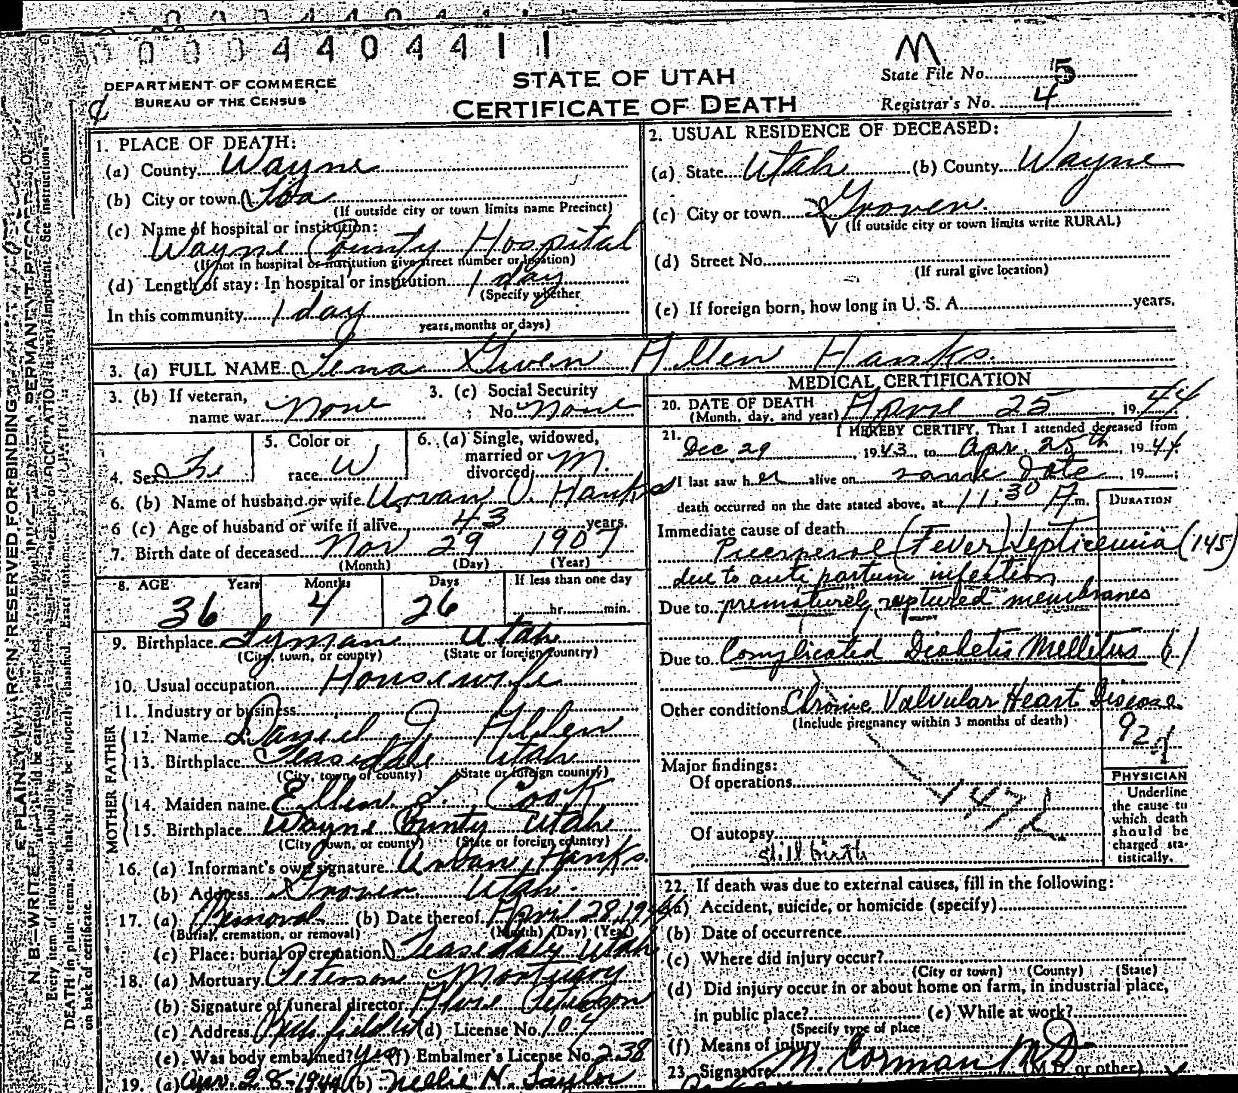 0 0 0 0 4 4 0 4 4 1 1
M
DEPARTMENT OF COMMERCE
BUREAU OF THE CENSUS
STATE OF UTAH
CERTIFICATE OF DEATH
State File No. 5
Registrar's No. 4
1. PLACE OF DEATH:
(a) County Wayne
(b) City or town Loa
(If outside city or town limits name Precinct)
(c) Name of hospital or institution:
Wayne County Hospital
(If not in hospital or institution give street number or location)
(d) Length of stay: In hospital or institution 1 day
(Specify whether
In this community 1 day
years, months or days)
2. USUAL RESIDENCE OF DECEASED:
(a) State Utah (b) County Wayne
(c) City or town Grover
(If outside city or town limits write RURAL)
(d) Street No.
(If rural give location)
(e) If foreign born, how long in U. S. A. years.
3. (a) FULL NAME Lena Gwen Allen Hanks
3. (b) If veteran, name war None
3. (c) Social Security No. None
4. Sex Fe
5. Color or race W
6. (a) Single, widowed, married or divorced M.
6. (b) Name of husband or wife Urvan O. Hanks
6 (c) Age of husband or wife if alive 43 years.
7. Birth date of deceased Nov 29 1907
(Month) (Day) (Year)
8. AGE Years Months Days If less than one day
36 4 26 hr. min.
9. Birthplace Lyman Utah
(City, town, or county) (State or foreign country)
10. Usual occupation Housewife
11. Industry or business
FATHER
12. Name Daniel J. Allen
13. Birthplace Teasdale Utah
(City, town, or county) (State or foreign country)
MOTHER
14. Maiden name Ellen L. Cook
15. Birthplace Wayne County Utah
(City, town, or county) (State or foreign country)
16. (a) Informant's own signature Urvan Hanks.
(b) Address Grover Utah.
17. (a) Removal (b) Date thereof April 28, 1944
(Burial, cremation, or removal) (Month) (Day) (Year)
(c) Place: burial or cremation Teasdale, Utah
18. (a) Mortuary Peterson Mortuary
(b) Signature of funeral director Peterson
(c) Address Richfield (d) License No. 107
(e) Was body embalmed? Yes (f) Embalmer's License No. 238
19. (a) Apr. 28-1944 (b) Nellie N. Taylor
MEDICAL CERTIFICATION
20. DATE OF DEATH April 25, 1944
(Month, day, and year)
21. I HEREBY CERTIFY, That I attended deceased from
Dec 29, 1943, to Apr. 25th, 1944
I last saw her alive on same date, 19
death occurred on the date stated above, at 11:30 A m.
DURATION
Immediate cause of death
Puerperal (Fever) Septicemia (145)
due to ante partum infection
Due to prematurely ruptured membranes
Due to Complicated Diabetis Mellitus 61
Other conditions Chronic Valvular Heart Disease
(Include pregnancy within 3 months of death)
92
Major findings:
Of operations
147
Of autopsy
still birth
PHYSICIAN
Underline the cause to which death should be charged statistically.
22. If death was due to external causes, fill in the following:
(a) Accident, suicide, or homicide (specify)
(b) Date of occurrence
(c) Where did injury occur?
(City or town) (County) (State)
(d) Did injury occur in or about home on farm, in industrial place,
in public place? (e) While at work?
(Specify type of place
(f) Means of injury
23. Signature M. Corman M D
(M.D. or other)
MARGIN RESERVED FOR BINDING